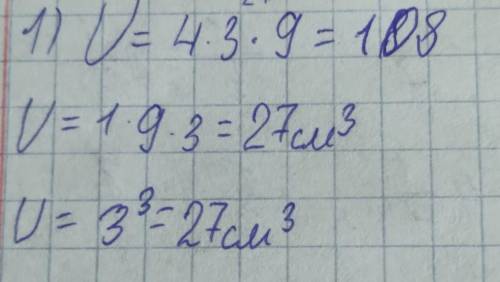 1) V = 4·3·9 = 108
V = 1·9·3 = 27см³
V = 3³ = 27см³